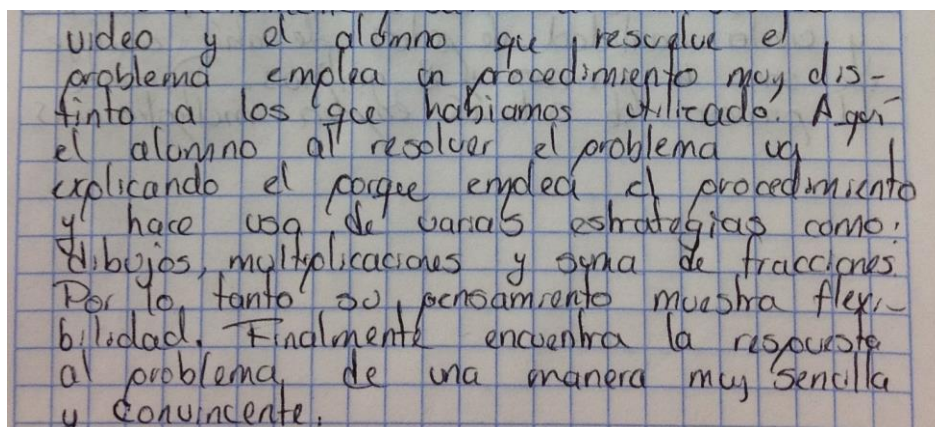 video y el alumno que resuelve el
problema emplea un procedimiento muy dis-
tinto a los que habiamos utilizado. Aquí
el alumno al resolver el problema va
explicando el porque emplea el procedimiento
y hace uso de varias estrategias como:
dibujos, multiplicaciones y suma de fracciones
Por lo tanto su pensamiento muestra flexi-
bilidad. Finalmente encuentra la respuesta
al problema, de una manera muy sencilla
y convincente.